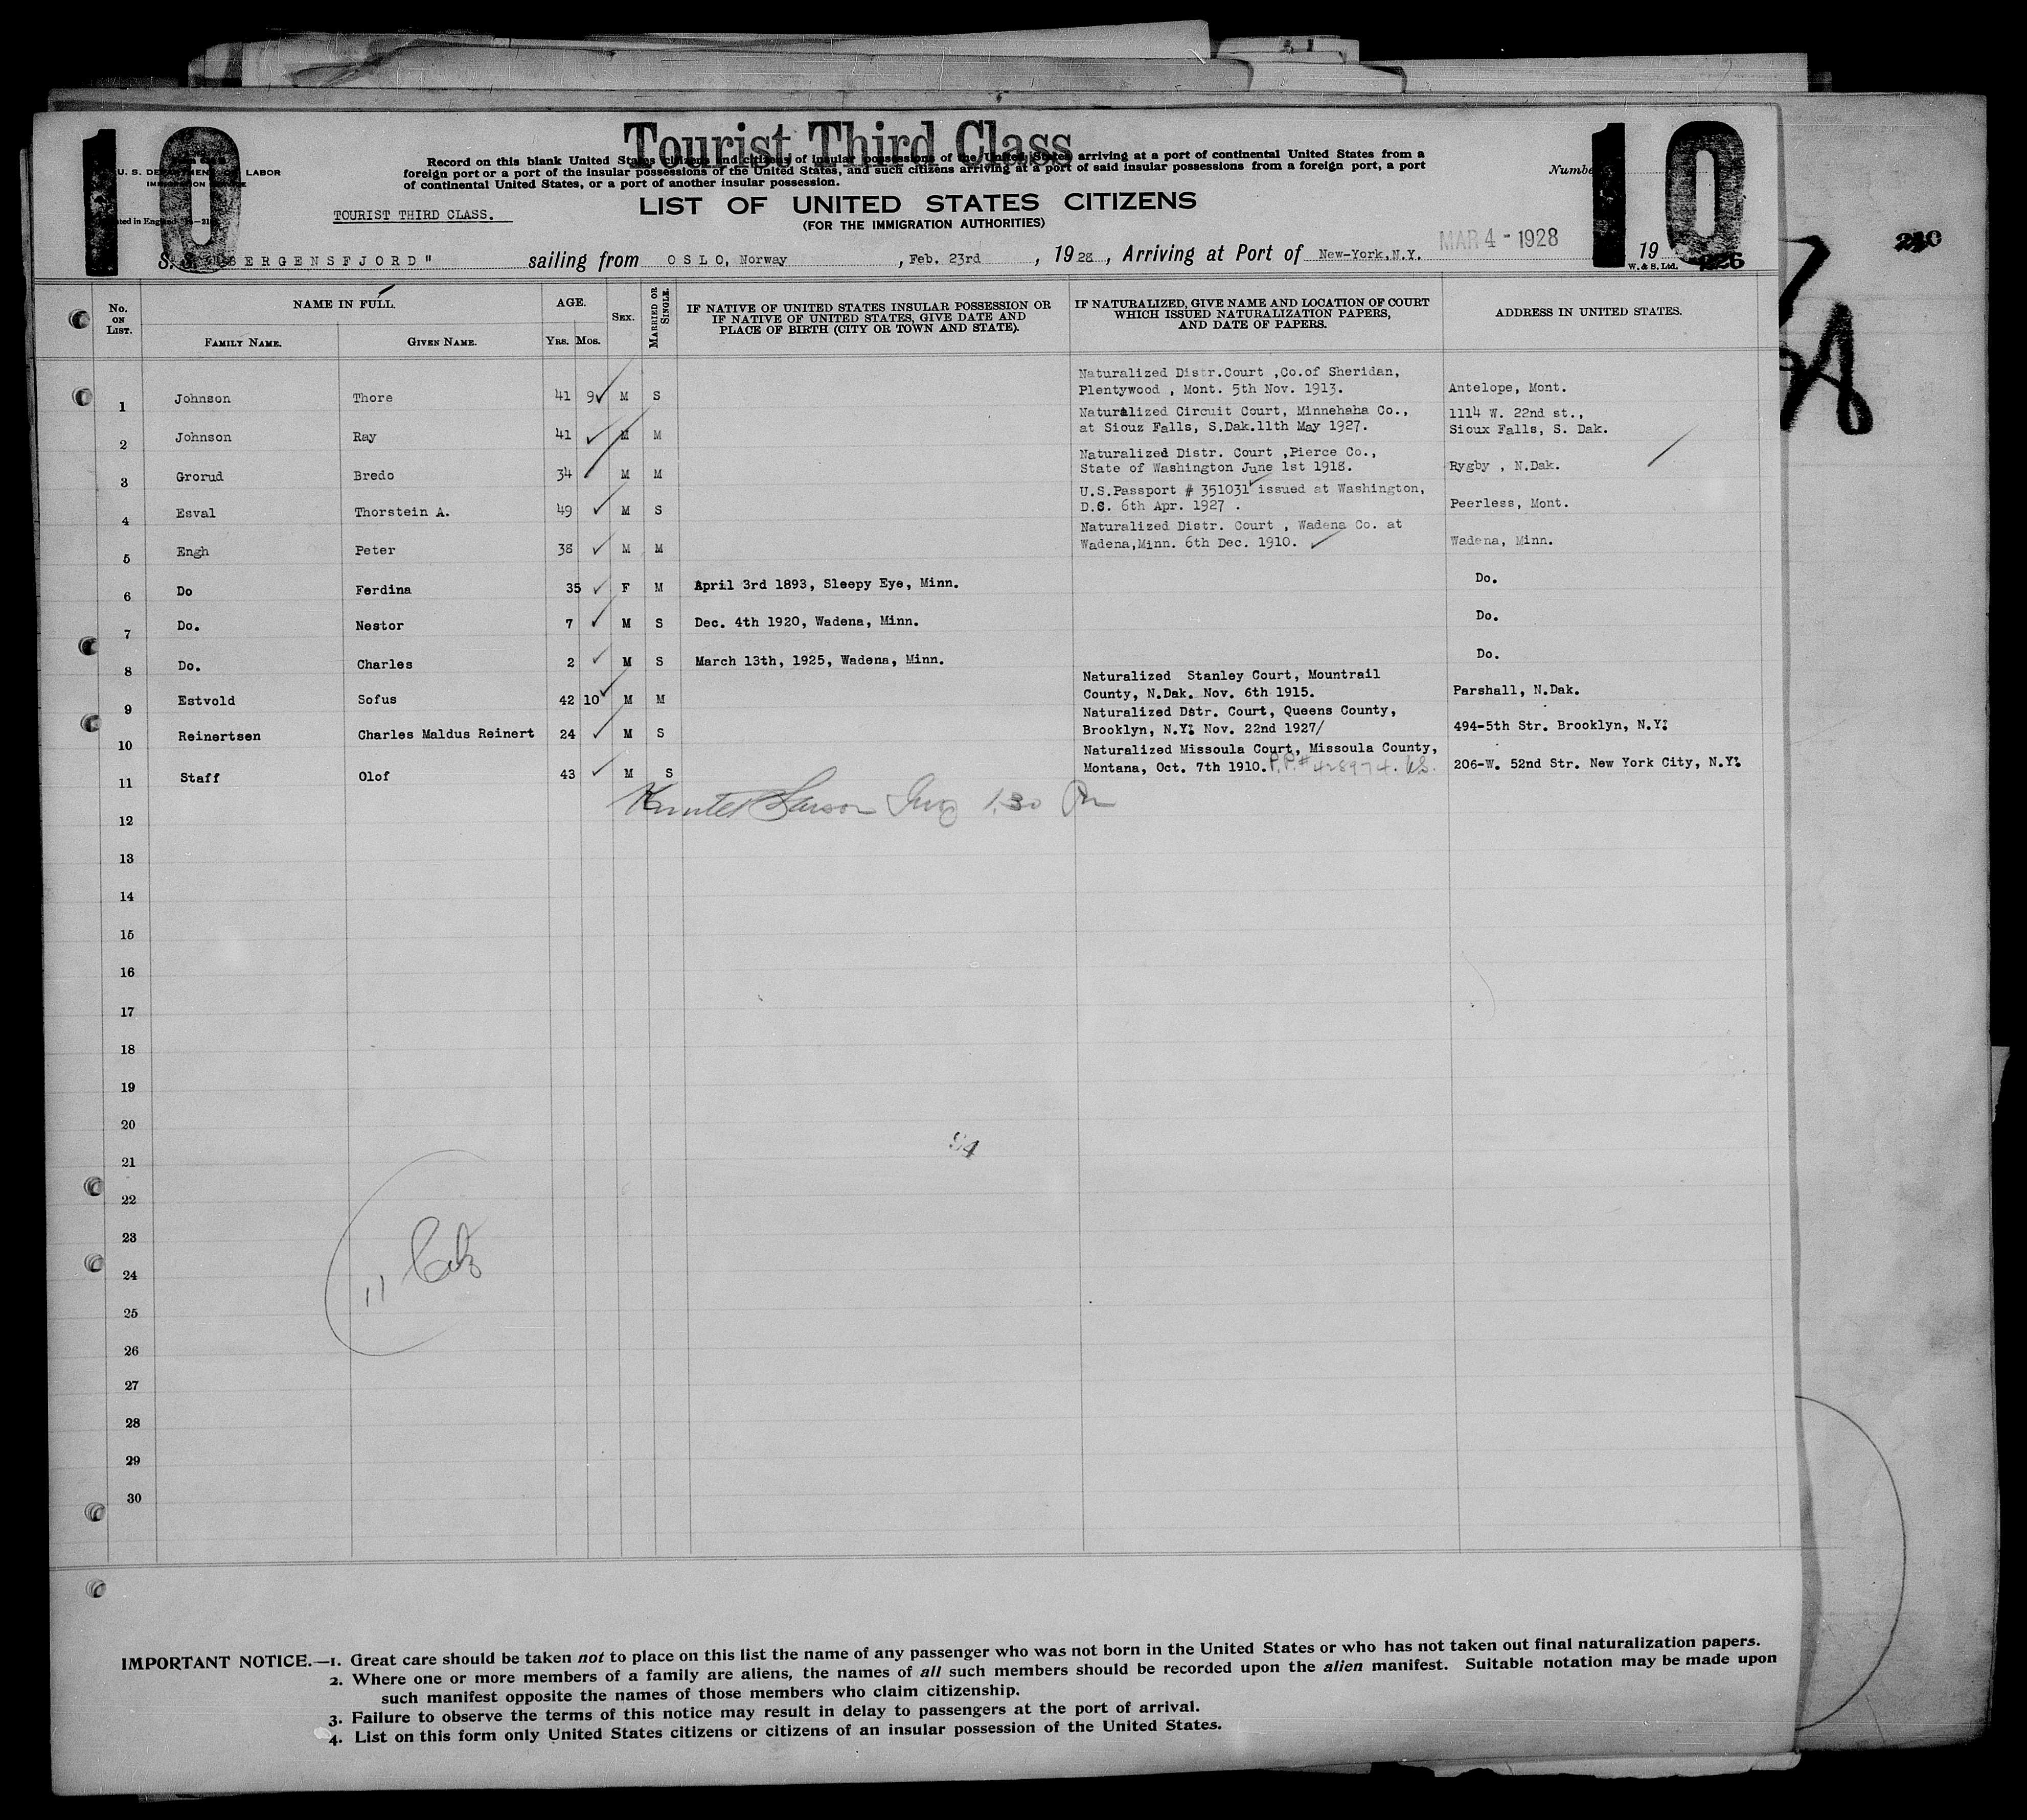 10
Tourist Third Class
10
U. S. DEPARTMENT OF LABOR
IMMIGRATION SERVICE
Record on this blank United States citizens and citizens of insular possessions of the United States arriving at a port of continental United States from a
foreign port or a port of the insular possessions of the United States, and such citizens arriving at a port of said insular possessions from a foreign port, a port
of continental United States, or a port of another insular possession.
TOURIST THIRD CLASS.
LIST OF UNITED STATES CITIZENS
(FOR THE IMMIGRATION AUTHORITIES)
S. S. "BERGENSFJORD" sailing from OSLO, Norway, Feb. 23rd, 1928, Arriving at Port of New-York,N.Y. MAR 4 - 1928 19
W. & S. Ltd.
226
240
No. ON LIST.
NAME IN FULL.
FAMILY NAME.
GIVEN NAME.
AGE.
YRS. MOS.
SEX.
MARRIED OR SINGLE.
IF NATIVE OF UNITED STATES INSULAR POSSESSION OR
IF NATIVE OF UNITED STATES, GIVE DATE AND
PLACE OF BIRTH (CITY OR TOWN AND STATE).
IF NATURALIZED, GIVE NAME AND LOCATION OF COURT
WHICH ISSUED NATURALIZATION PAPERS,
AND DATE OF PAPERS.
ADDRESS IN UNITED STATES.
Naturalized Distr.Court ,Co.of Sheridan,
1 Johnson Thore 41 9 M S Plentywood , Mont. 5th Nov. 1913. Antelope, Mont.
Naturalized Circuit Court, Minnehaha Co., 1114 W. 22nd st.,
2 Johnson Ray 41 M M at Siouz Falls, S.Dak.11th May 1927. Sioux Falls, S. Dak.
Naturalized Distr. Court ,Pierce Co.,
3 Grorud Bredo 34 M M State of Washington June 1st 1918. Rygby , N.Dak.
U.S.Passport # 351031 issued at Washington,
4 Esval Thorstein A. 49 M S D.C. 6th Apr. 1927 . Peerless, Mont.
Naturalized Distr. Court , Wadena Co. at
5 Engh Peter 38 M M Wadena,Minn. 6th Dec. 1910. Wadena, Minn.
6 Do Ferdina 35 F M April 3rd 1893, Sleepy Eye, Minn. Do.
7 Do. Nestor 7 M S Dec. 4th 1920, Wadena, Minn. Do.
8 Do. Charles 2 M S March 13th, 1925, Wadena, Minn. Do.
Naturalized Stanley Court, Mountrail
9 Estvold Sofus 42 10 M M County, N.Dak. Nov. 6th 1915. Parshall, N.Dak.
Naturalized Dstr. Court, Queens County,
10 Reinertsen Charles Maldus Reinert 24 M S Brooklyn, N.Y: Nov. 22nd 1927/ 494-5th Str. Brooklyn, N.Y:
Naturalized Missoula Court, Missoula County,
11 Staff Olof 43 M S Montana, Oct. 7th 1910. P.P.# 428974. U.S. 206-W. 52nd Str. New York City, N.Y:
Larson 1.30 Pm
12
13
14
15
16
17
18
19
20
94
21
22
23
24
11
25
26
27
28
29
30
IMPORTANT NOTICE.—1. Great care should be taken not to place on this list the name of any passenger who was not born in the United States or who has not taken out final naturalization papers.
2. Where one or more members of a family are aliens, the names of all such members should be recorded upon the alien manifest. Suitable notation may be made upon
such manifest opposite the names of those members who claim citizenship.
3. Failure to observe the terms of this notice may result in delay to passengers at the port of arrival.
4. List on this form only United States citizens or citizens of an insular possession of the United States.